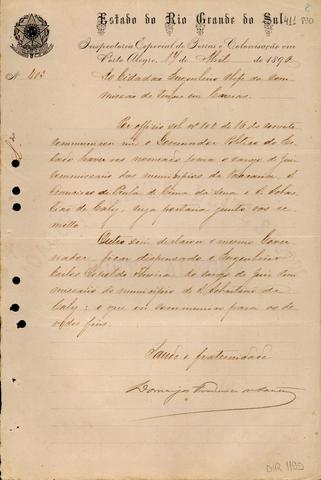 Estado do Rio Grande do Sul
411 830
Inspectoria Especial de Terras e Colonisação em
Porto Alegre, de Abril de 1892
N. 413
Ao Cidadão Engenheiro Chefe da Com
missão de Terras em
Por officio sob nº 102 de 16 do corrente
communicou-me o Governador do Es
tado haver vos nomeado para o cargo de Juiz
Commissario dos municipios da Vaccaria, S.
Francisco de Paula de Cima da Serra e S. Sebas
tião do Cahy, cuja portaria junto vos re
metto.
Outro sim declarou o mesmo Gover
nador ficar dispensado o Engenheiro
Carlos do cargo de Juiz Com
missario do municipio de S. Sebastião do
Cahy: o que vos communico para os de
vidos fins.
Saude e fraternidade
Domingos
DIR 1199